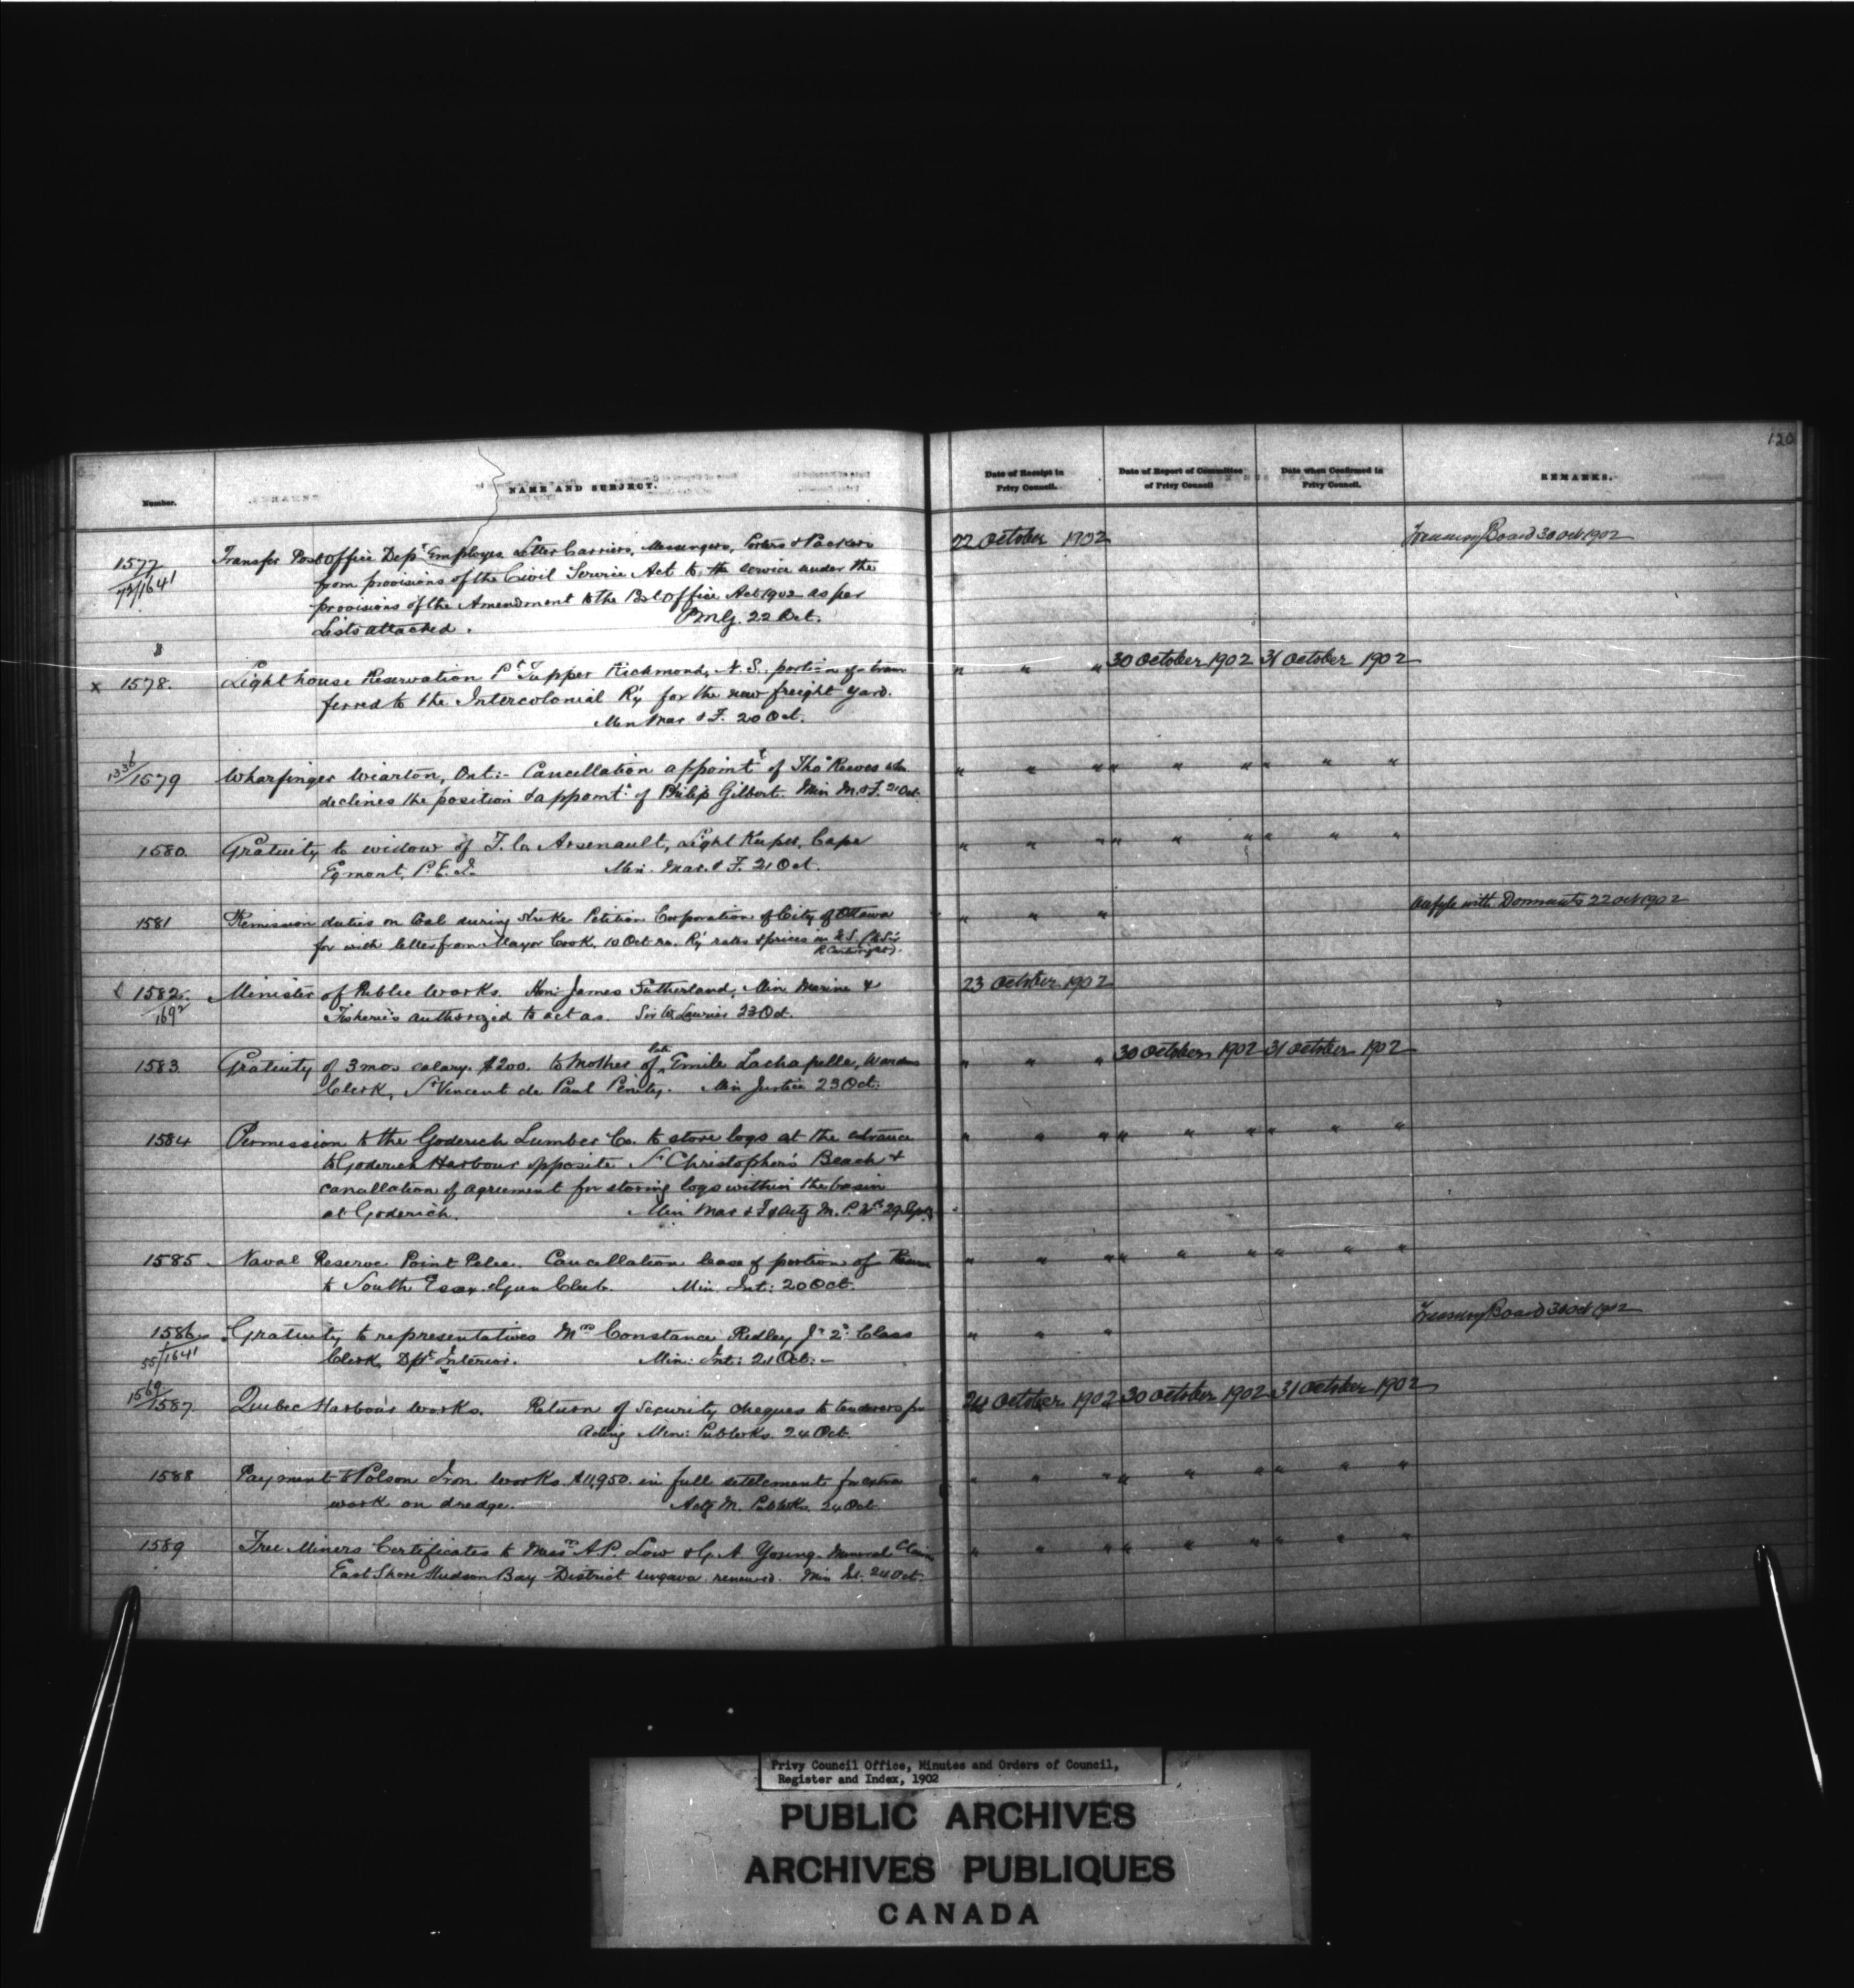 120
Number.
NAME AND SUBJECT.
Date of Receipt in Privy Council.
Date of Report of Committee of Privy Council
Date when Confirmed in Privy Council.
REMARKS.
1577 Transfer Post Office Dept Employes Letter Carriers, Messengers, Porters & Packers 22 October 1902 Treasury Board 30 Oct 1902
72/1641 from provisions of the Civil Service Act to the service under the
provisions of the Amendment to the Post Office Act 1902 as per
Lists attached. PMG. 22 Oct.
x 1578. Lighthouse Reservation Pt Tupper Richmond, N.S. portion of trans " " " 30 October 1902 31 October 1902
ferred to the Intercolonial Ry for the new freight yard.
Min Mar & F. 20 Oct.
1336/1579 Wharfinger Wiarton, Ont:- Cancellation appointt of Thos Reeves who " " " " " " " " "
declines the position & appomt: of Philip Gilbert. Min M. & F. 21 Oct.
1580. Gratuity to widow of T. C. Arsenault, Light Keeper, Cape " " " " " " " " "
Egmont, P.E.I. Min. Mar. & F. 21 Oct.
1581 Remission duties on Coal during strike Petition Corporation of City of Ottawa " " " 22 Oct 1902
for with letter from Mayor Cook, 10 Oct re. Ry rates & prices in U.S. (R Cartwright).
1582. Minister of Public Works. Hon: James Sutherland, Min Marine & 23 October 1902
1692 Fisheries authorized to act as. Sir W. Laurier 23 Oct.
1583 Gratuity of 3 mos salary. $200. to Mother of late Emile Lachapelle, Wardens " " " 30 October 1902 31 October 1902
Clerk, St Vincent de Paul Penity. Min Justice 23 Oct:
1584 Permission to the Goderich Lumber Co. to store logs at the entrance " " " " " " " " "
to Goderich Harbour opposite St Christopher's Beach &
cancellation of agreement for storing logs within the basin
at Goderich. Min Mar & F & Actg M. P. Wks 29 Sept.
1585. Naval Reserve Point Pelee. Cancellation lease of portion of Reserve " " " " " " " " "
to South Essex Gun Club. Min. Int: 20 Oct.
1586 Gratuity to representatives Mrs Constance Ridley Jr 2d Class " " " Treasury Board 30 Oct 1902
55/1641 Clerk, Dept Interior. Min: Int: 21 Oct:-
1569/1587. Quebec Harbour Works. Return of Security cheques to tenderers for 24 October 1902 30 October 1902 31 October 1902
Acting Min: Pub Wks. 24 Oct.
1588 Payment to Polson Iron Works $11,950. in full settlement for extra " " " " " " " " "
work on dredge. Actg M. Pub Wks. 24 Oct
1589 Free Miners Certificates to Messrs A.P. Low & G. A Young. Mineral Claim " " " " " " " " "
East Shore Hudson Bay District Ungava renewed. Min Int. 24 Oct.
Privy Council Office, Minutes and Orders of Council,
Register and Index, 1902
PUBLIC ARCHIVES
ARCHIVES PUBLIQUES
CANADA